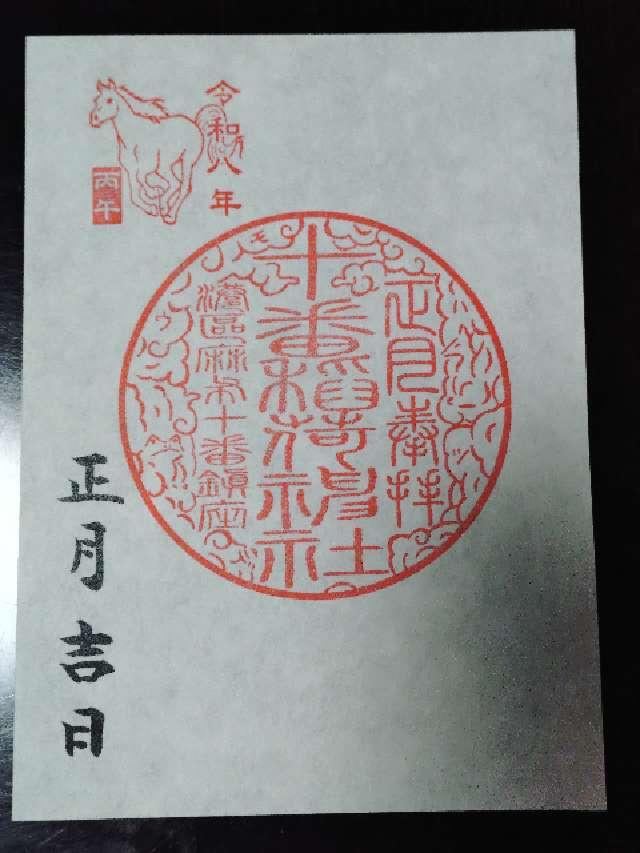 令和八年
丙午
正月奉拝
十番稲荷神社
港區麻布十番鎮座
正月吉日